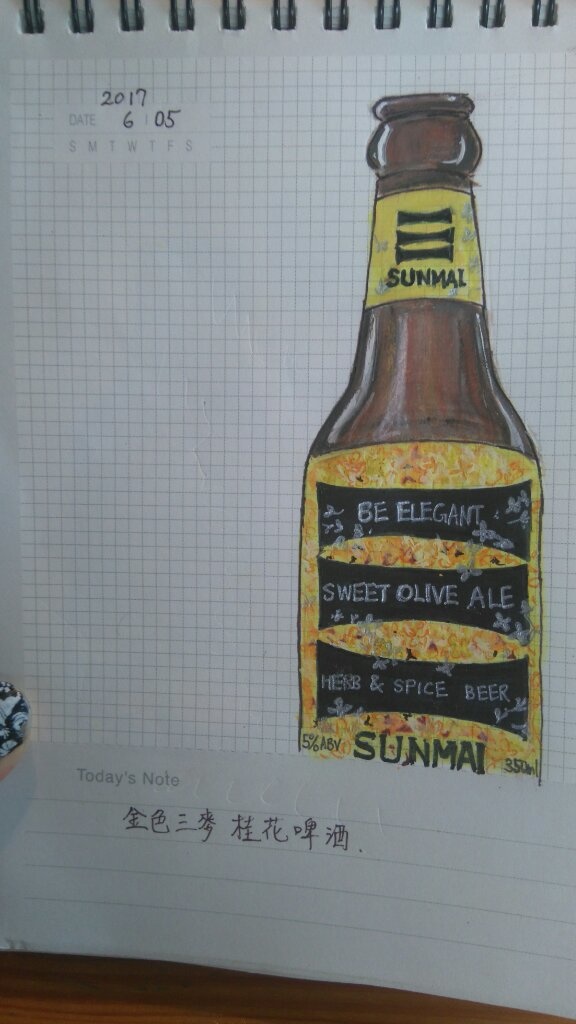 2017
DATE 6 05
S M T W T F S
SUNMAI
BE ELEGANT
SWEET OLIVE ALE
HERB & SPICE BEER
5% ABV SUNMAI 350ml
Today's Note
金色三麥 桂花啤酒.